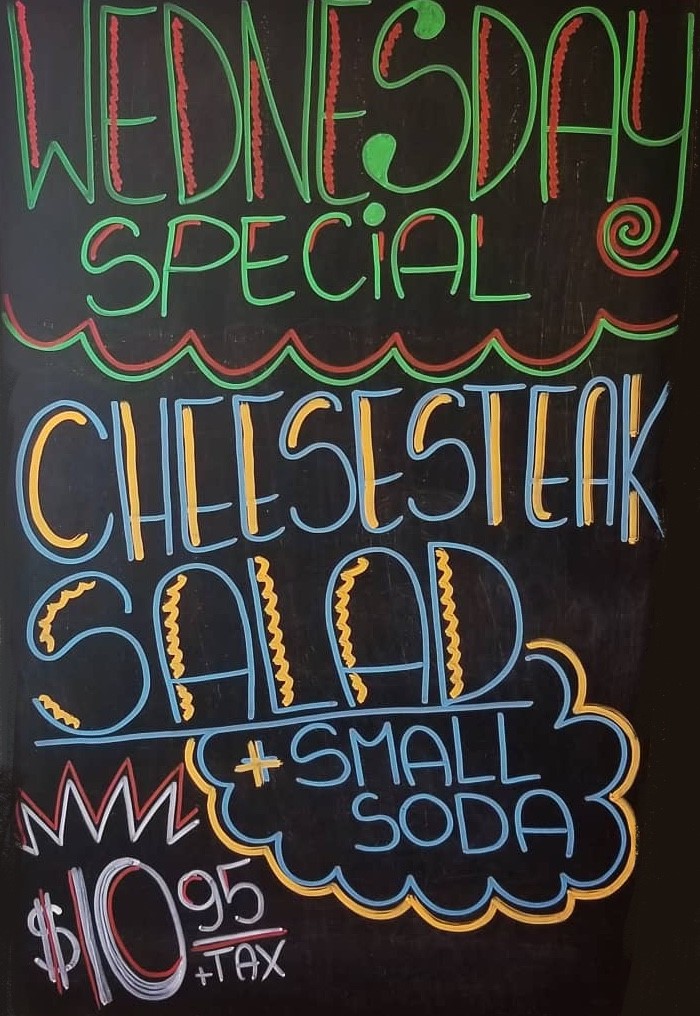 WEDNESDAY
SPECiAL
CHEESESTEAK
SALAD
+ SMALL
SODA
$10 95
+TAX